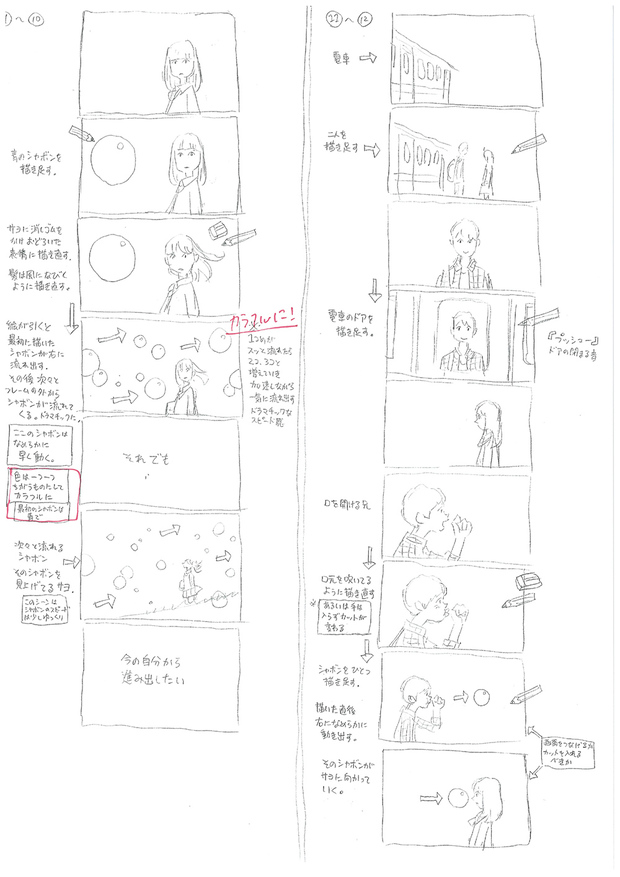 〜⑩
青のシャボンを
描き足す。
サヨに消しゴムを
かけ おどろいた
表情に描き直す。
髪は風になびく
ように描き直す。
絵が引くと
最初に描いた
シャボンが右に
流れ出す。
その後 次々と
フレームの外から
シャボンが流れて
くる。ドラマチックに。
カラフルに!
1つめが
スッと流れたら
2コ、3コと
増えていき
加速しながら
一気に流れ出す
ドラマチックな
スピード感
ここのシャボンは
なめらかに
早く動く。
色は一つ一つ
ちがうものにして
カラフルに
最初のシャボンは
青で
それでも
次々と流れる
シャボン
そのシャボンを
見上げてるサヨ。
このシーンは
シャボンのスピード
は少しゆっくり
今の自分から
進み出したい
〜⑫
電車
二人を
描き足す
電車のドアを
描き足す。
『プッシュー』
ドアの閉まる音
口を開ける兄
口元を吹いてる
ように描き直す
※
あるいは手は
入らずカットが
変わる
シャボンをひとつ
描き足す。
描いた直後
右になめらかに
動き出す。
画面をつなげるか
カットを入れる
べきか
そのシャボンが
サヨに向かって
いく。